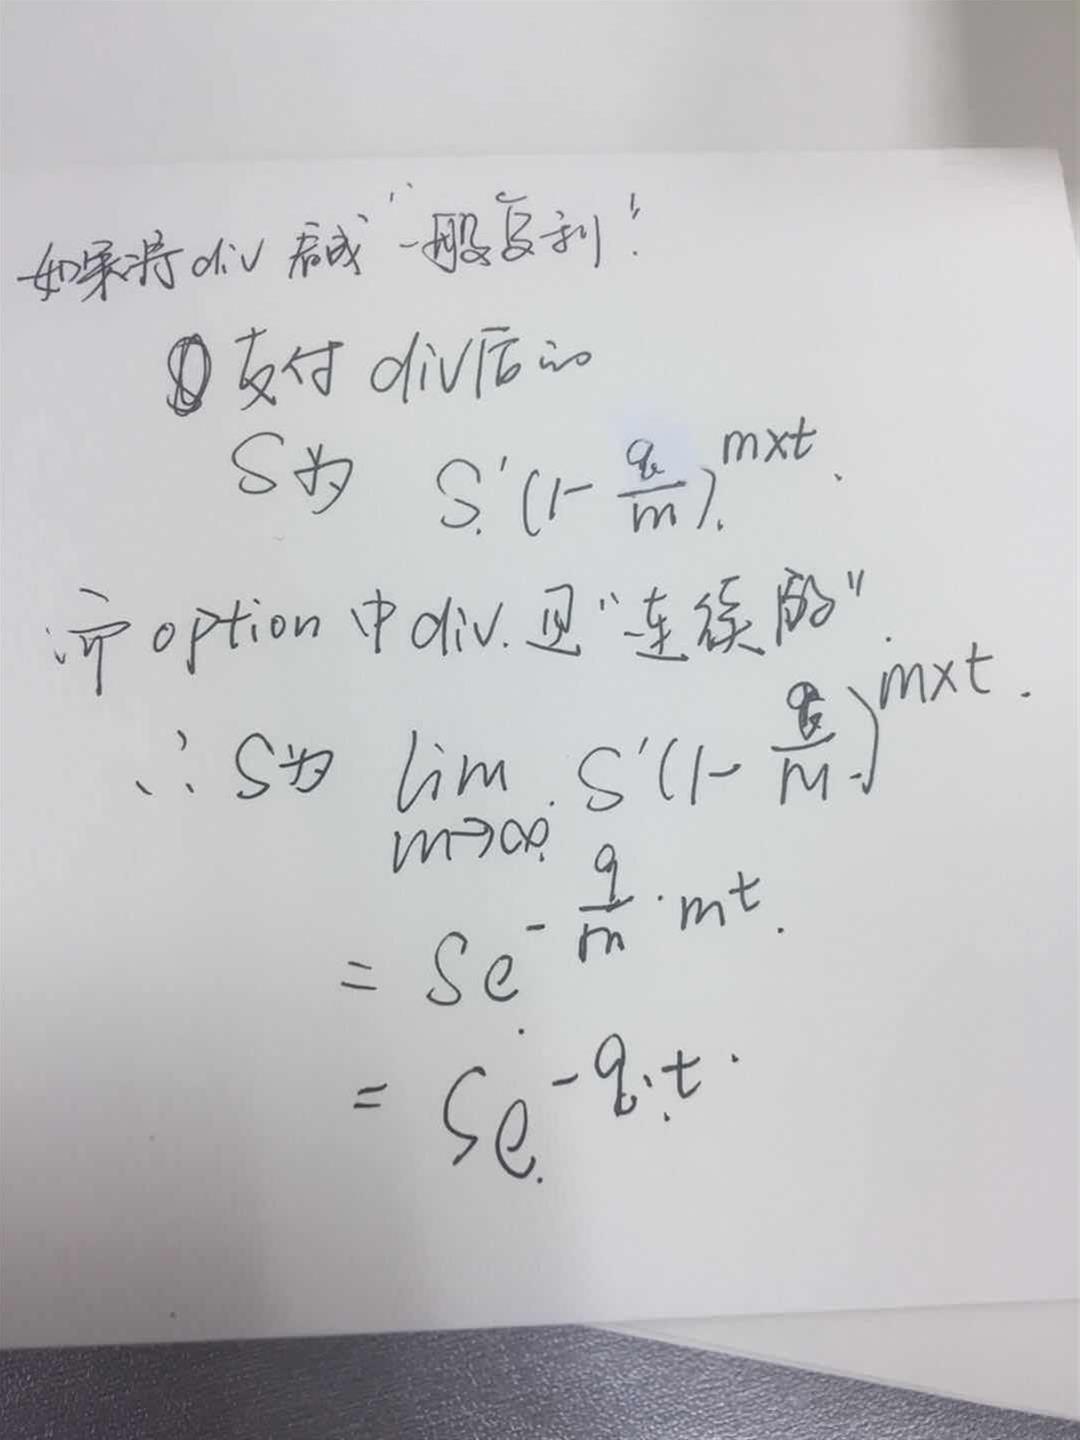 如果将 div 看成 "一般复利"
① 支付 div后的
S为 S'(1-q/m)^(m×t).
而 option 中 div. 是 "连续的".
∴ S为 lim S'(1-q/m)^(m×t).
m→∞
= Se^(-q/m·mt).
= Se^(-q·t).